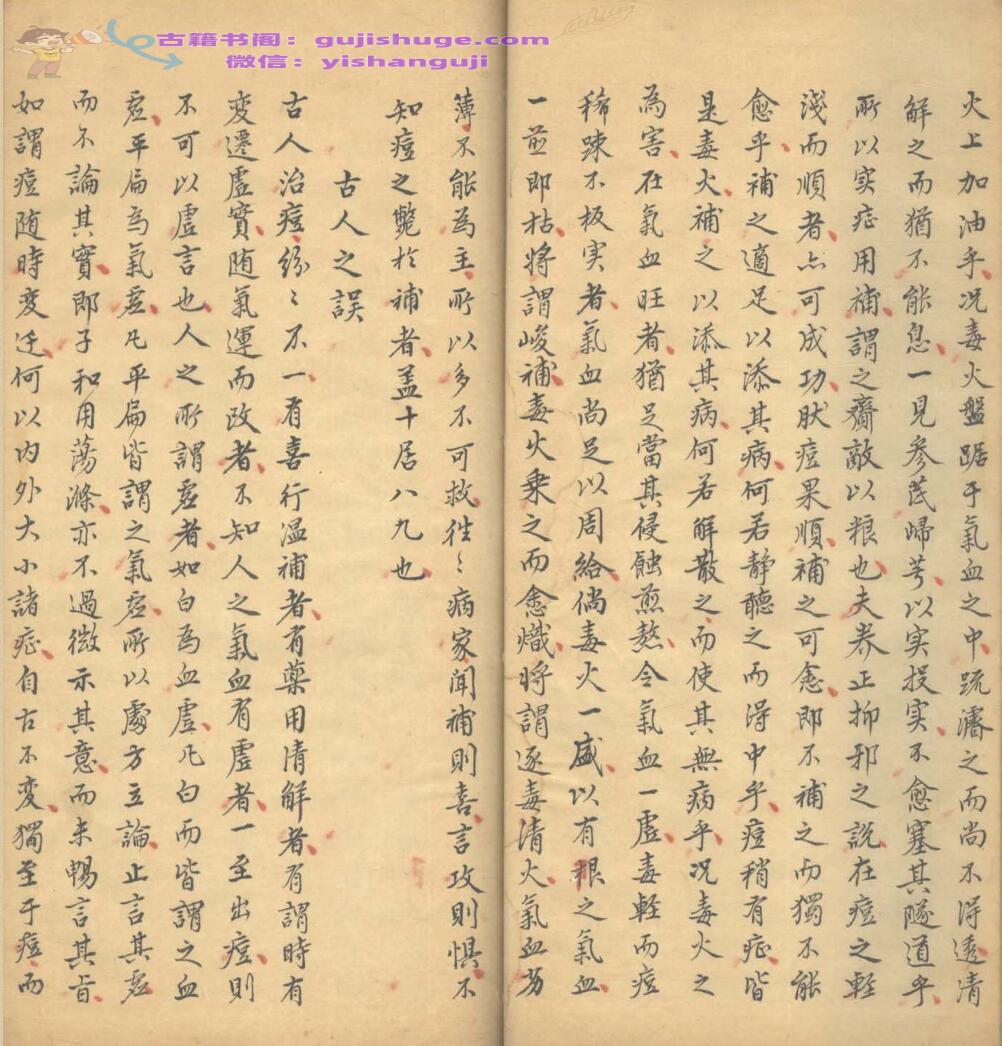 古籍书阁：gujishuge.com
微信：yishanguji
火上加油乎况毒火盤踞于氣血之中疏瀹之而尚不得透清
解之而猶不能息一見參芪歸芎以实投实不愈塞其隧道乎
所以实症用補謂之齎敵以粮也夫养正抑邪之説在痘之輕
淺而順者亦可成功肰痘果順補之可愈即不補之而獨不能
愈乎補之適足以添其病何若静聽之而得中乎痘稍有症皆
是毒火補之以添其病何若解散之而使其無病乎况毒火之
為害在氣血旺者猶足當其侵蝕煎熬令氣血一虚毒輕而痘
稀踈不板实者氣血尚足以周給倘毒火一盛以有根之氣血
一煎即枯將謂峻補毒火乘之而愈熾將謂逐毒清火氣血芴
薄不能為主所以多不可救徃〻病家闻補則喜言攻則惧不
知痘之斃於補者盖十居八九也
古人之誤
古人治痘紛〻不一有喜行温補者有藥用清解者有謂時有
変遷虚實随氣運而改者不知人之氣血有虚者一至出痘則
不可以虚言也人之所謂虚者如白為血虚凡白而皆謂之血
虚平扁為氣虚凡平扁皆謂之氣虚所以處方立論止言其虚
而不論其實即子和用蕩滌亦不過微示其意而未暢言其旨
如謂痘随時变迁何以内外大小諸症自古不变獨至于痘而